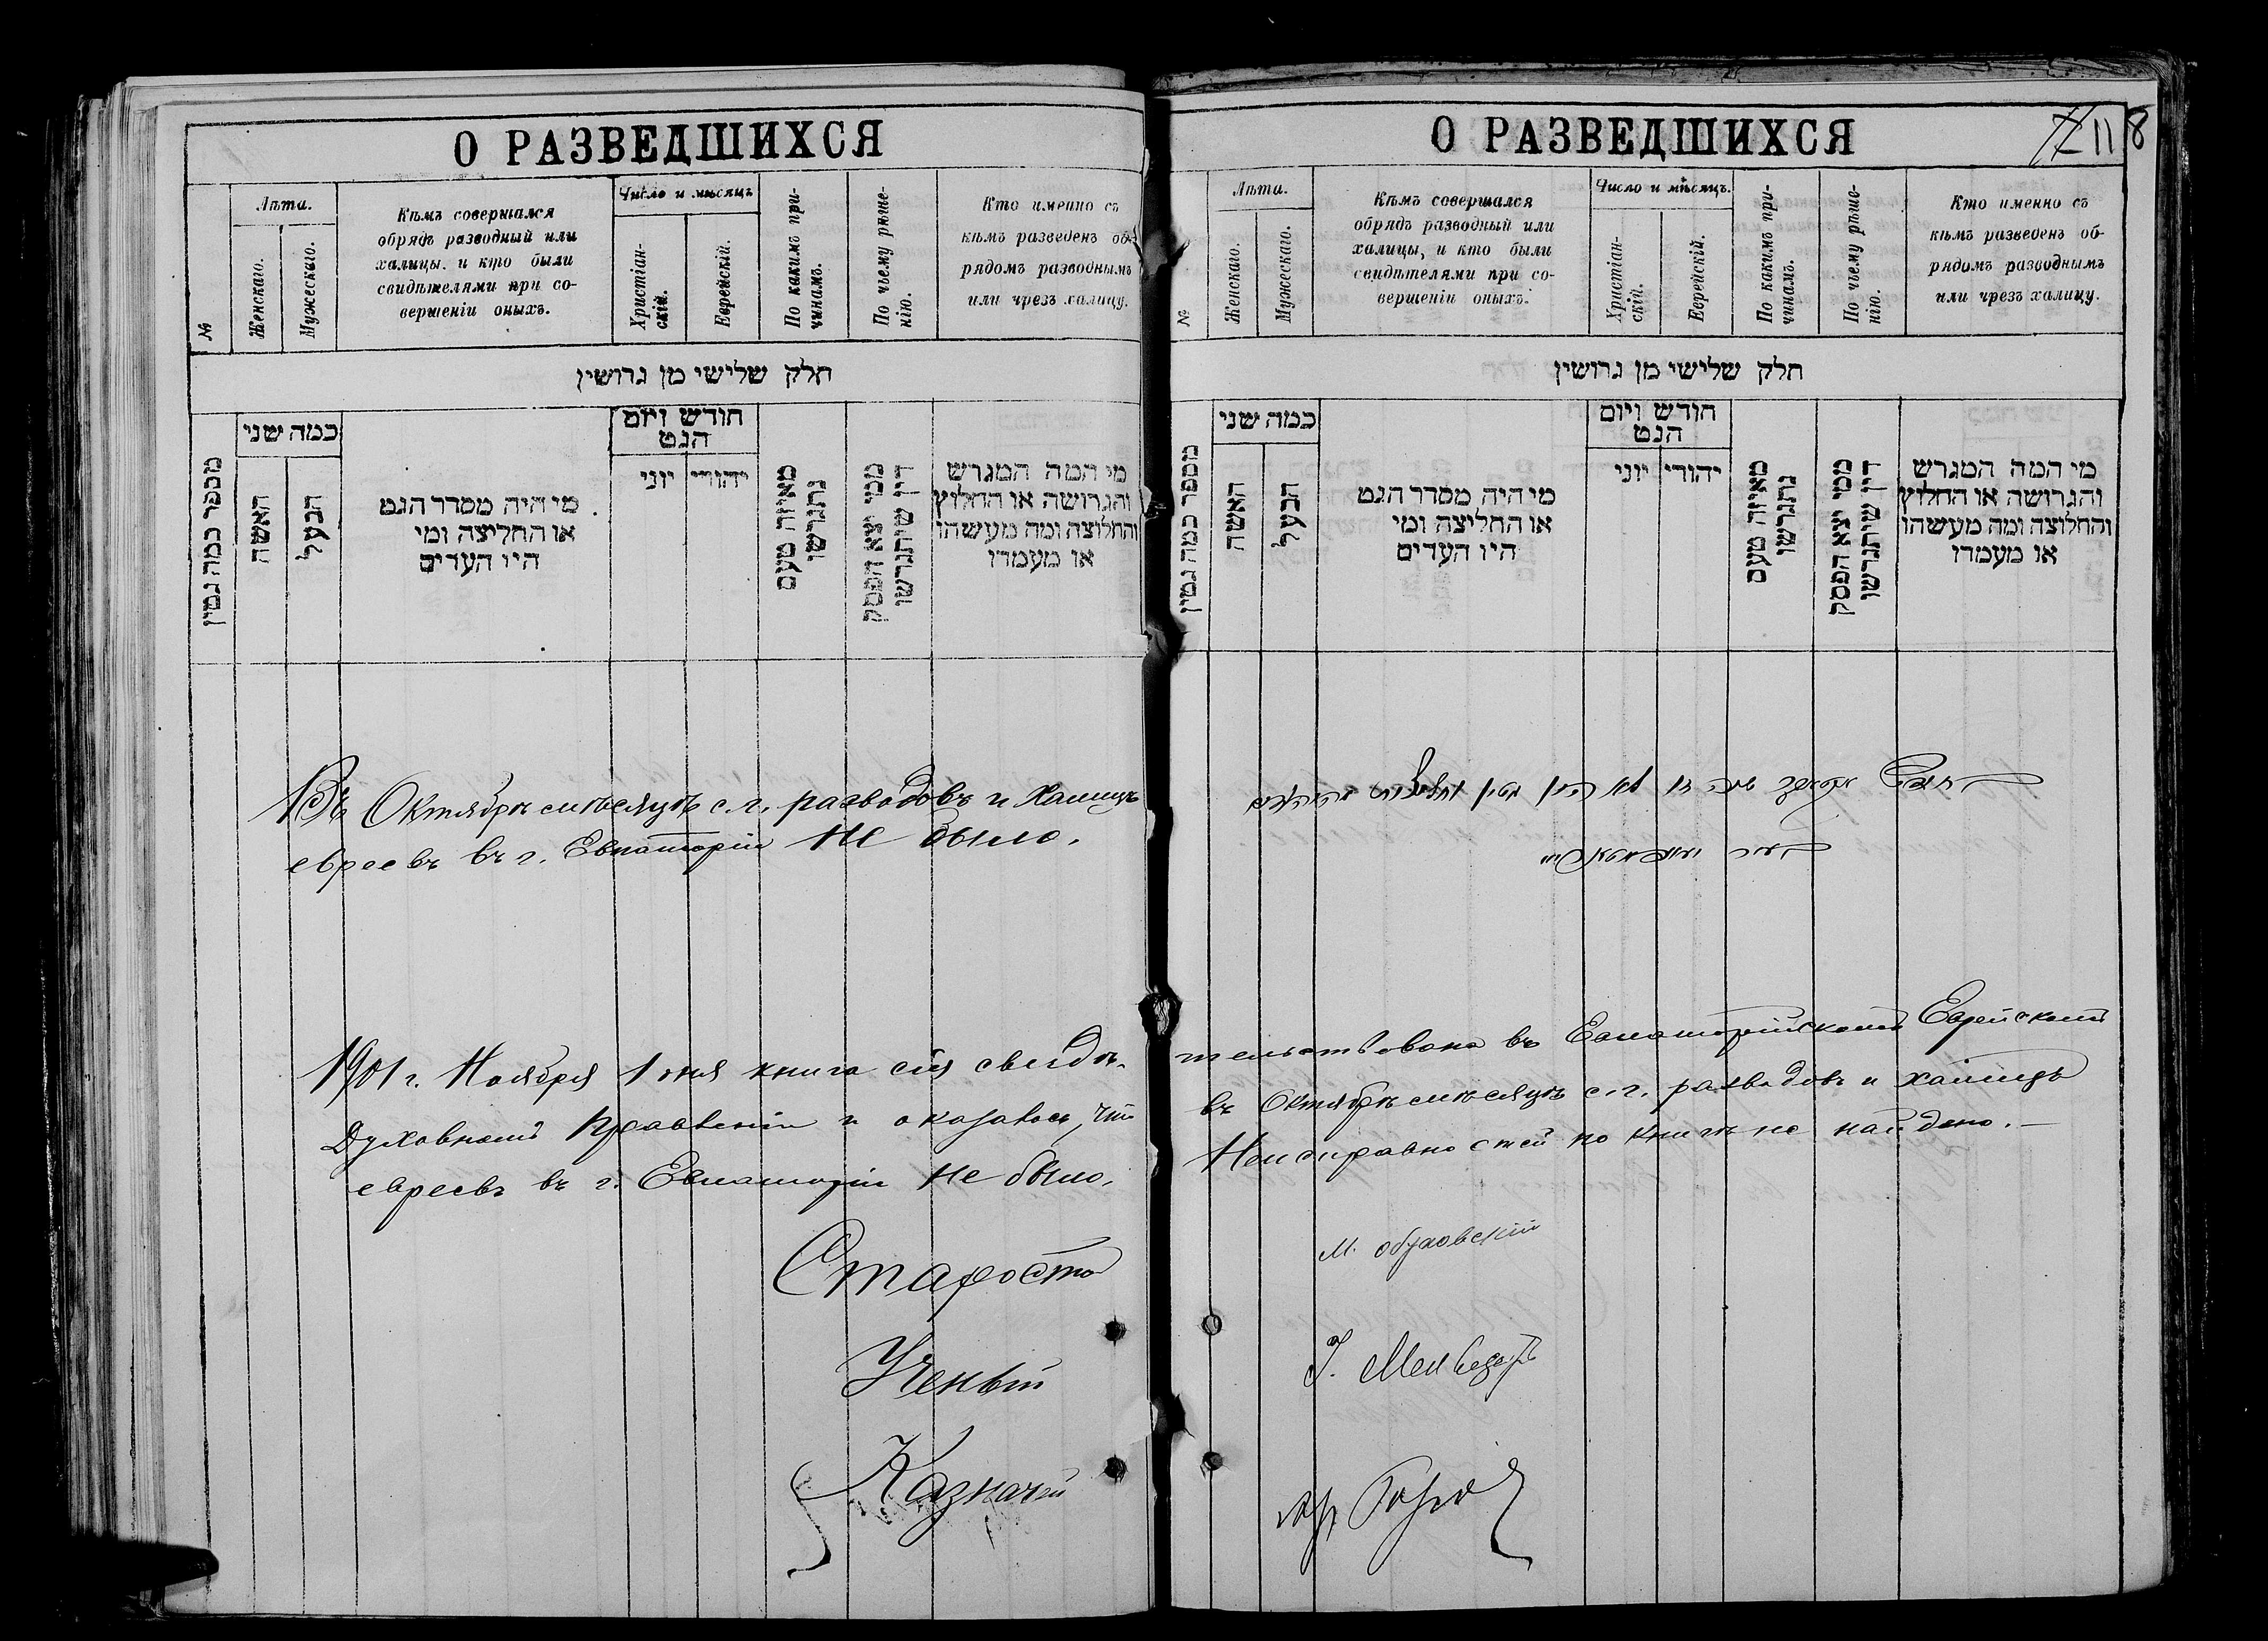 О РАЗВЕДШИХСЯ
№
Лѣта.
Женскаго.
Мужескаго.
Кѣмъ совершался
обрядъ разводный или
халицы, и кто были
свидѣтелями при со-
вершеніи оныхъ.
Число и мѣсяцъ
Христіан-
скій.
Еврейскій.
По какимъ при-
чинамъ.
По чьему рѣше-
нію.
Кто именно съ
кѣмъ разведенъ об-
рядомъ разводнымъ
или чрезъ халицу.
חלק שלישי מן גרושין
מספר כמה גטין
כמה שני
האשה
הבעל
מי היה מסדר הגט
או החליצה ומי
היו העדים
חודש ויום
הגט
יוני
יהודי
מאיזה טעם
נתגרשו
ממי יצא הפסק
דין שיתגרשו
מי המה המגרש
והגרושה או החלוץ
והחלוצה ומה מעשהו
או מעמדו
Въ Октябрѣ мѣсяцѣ с. г. разводовъ и Халицъ
евреевъ въ г. Евпаторіи не было.
1901 г. Ноября 1 дня книга сія свидѣ-
Духовномъ Правленіи и оказалось, что
евреевъ въ г. Евпаторіи не было.
Староста
Ученый
Казначей
О РАЗВЕДШИХСЯ
118
№
Лѣта.
Женскаго.
Мужескаго.
Кѣмъ совершался
обрядъ разводный или
халицы, и кто были
свидѣтелями при со-
вершеніи оныхъ.
Число и мѣсяцъ.
Христіан-
скій.
Еврейскій.
По какимъ при-
чинамъ.
По чьему рѣше-
нію.
Кто именно съ
кѣмъ разведенъ об-
рядомъ разводнымъ
или чрезъ халицу.
חלק שלישי מן גרושין
מספר כמה גטין
כמה שני
האשה
הבעל
מי היה מסדר הגט
או החליצה ומי
היו העדים
חודש ויום
הגט
יוני
יהודי
מאיזה טעם
נתגרשו
ממי יצא הפסק
דין שיתגרשו
מי המה המגרש
והגרושה או החלוץ
והחלוצה ומה מעשהו
או מעמדו
לא היו גטין
тельствована въ Евпаторійскомъ Еврейскомъ
въ Октябрѣ мѣсяцѣ с. г. разводовъ и халицъ
Неисправностей по книгѣ не найдено.
М.